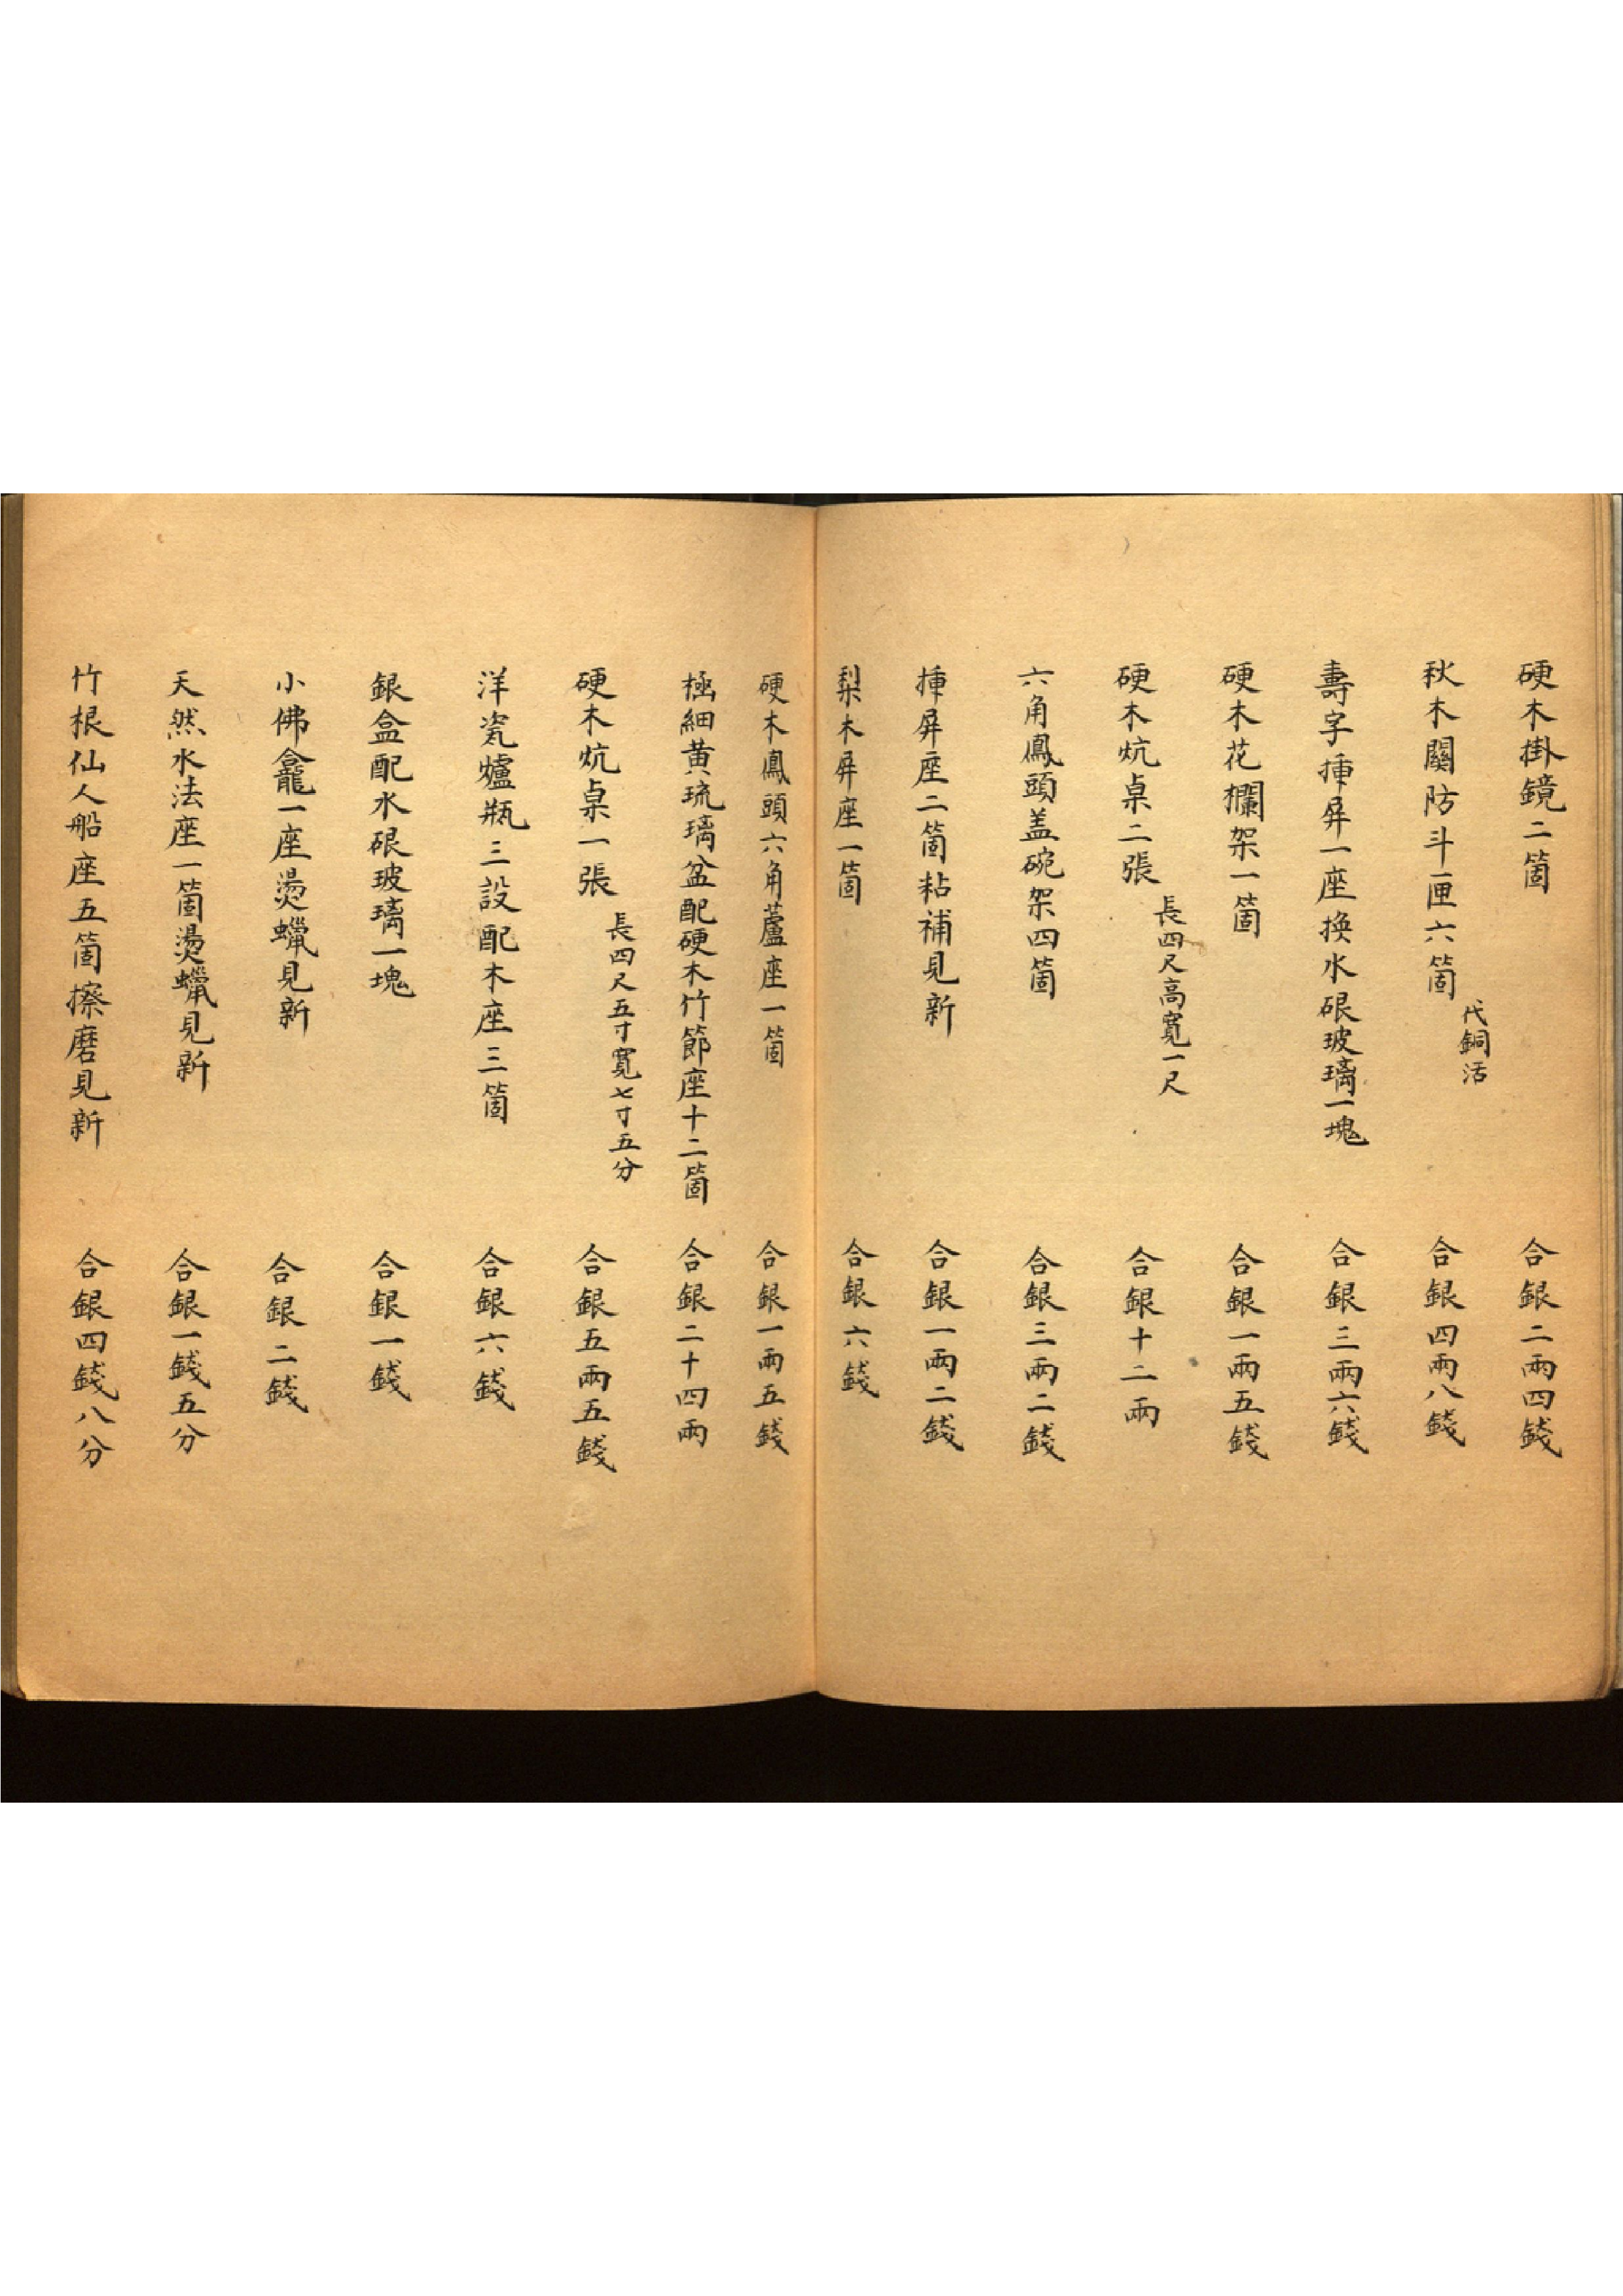 硬木掛鏡二箇　合銀二兩四錢
秋木關防斗匣六箇代銅活　合銀四兩八錢
壽字揷屏一座換水硍玻璃一塊　合銀三兩六錢
硬木花欄架一箇　合銀一兩五錢
硬木炕桌二張長四尺高寬一尺　合銀十二兩
六角鳳頭盖碗架四箇　合銀三兩二錢
揷屏座二箇粘補見新　合銀一兩二錢
梨木屏座一箇　合銀六錢
硬木鳳頭六角蘆座一箇　合銀一兩五錢
極細黄琉璃盆配硬木竹節座十二箇　合銀二十四兩
硬木炕桌一張長四尺五寸寬七寸五分　合銀五兩五錢
洋瓷爐瓶三設配木座三箇　合銀六錢
銀盒配水硍玻璃一塊　合銀一錢
小佛龕一座燙蠟見新　合銀二錢
天然水法座一箇燙蠟見新　合銀一錢五分
竹根仙人船座五箇擦磨見新　合銀四錢八分